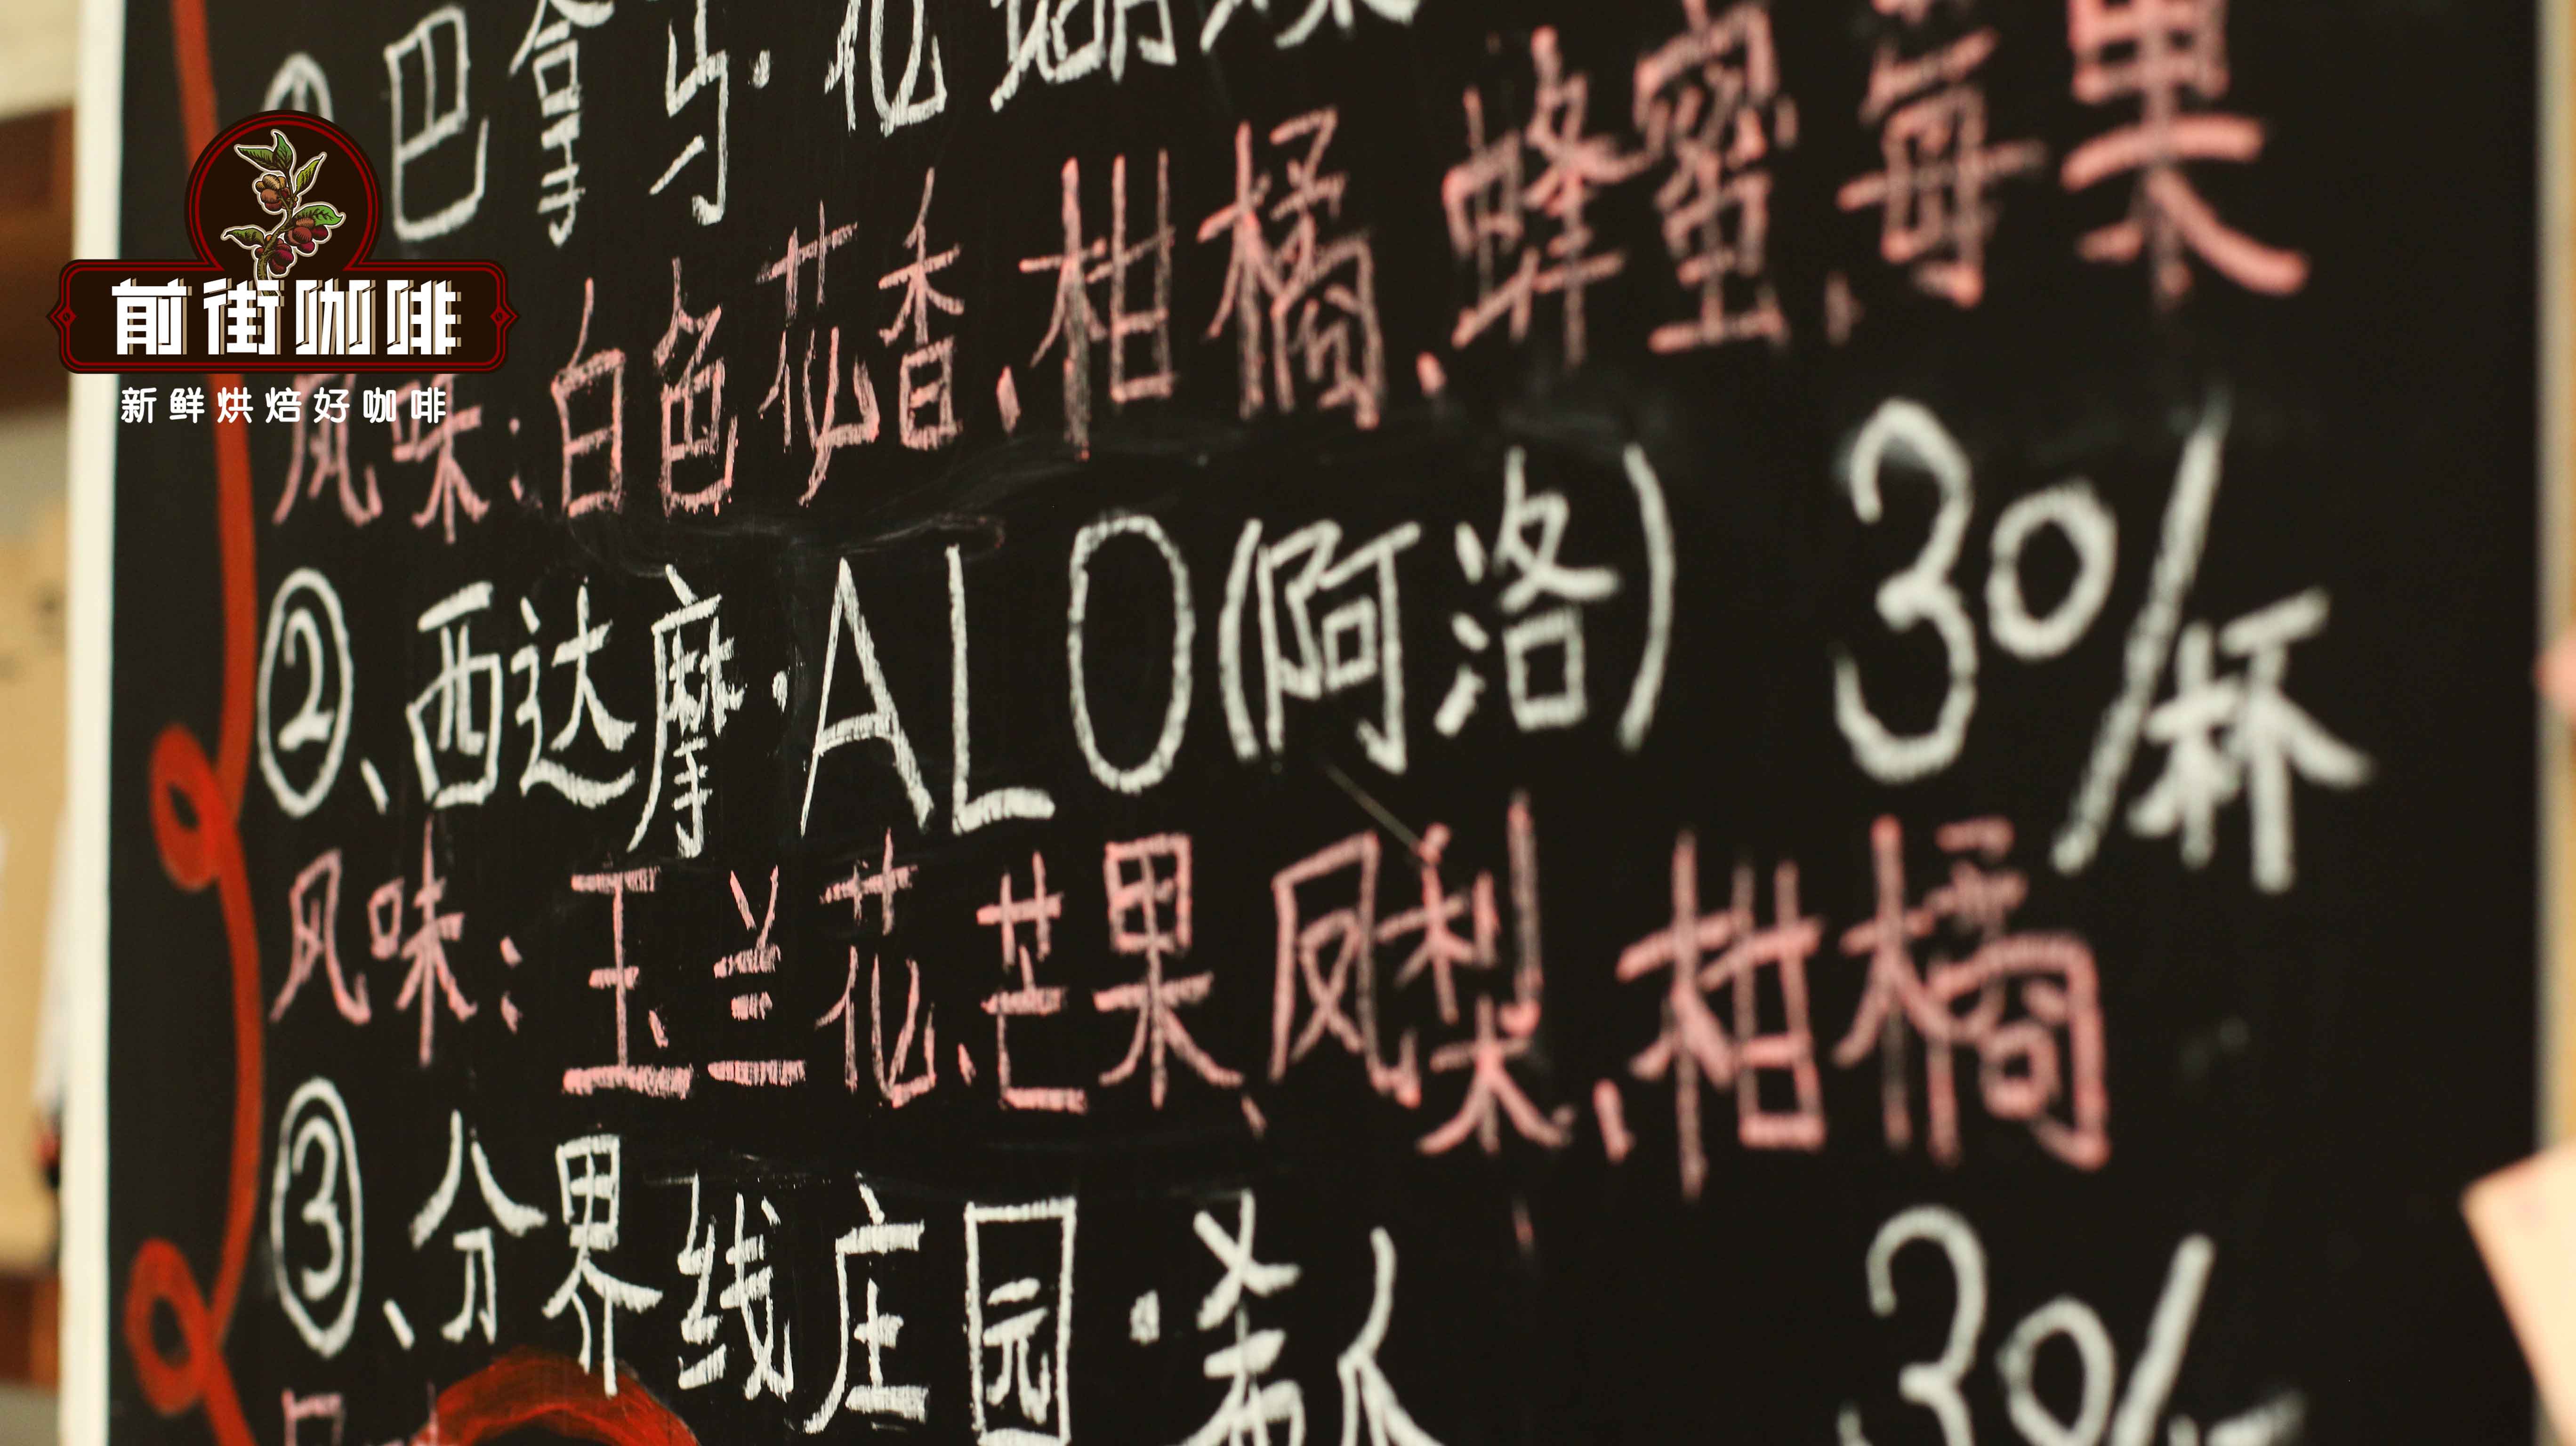 ①巴拿马·花蝴蝶
前街咖啡
新鲜烘焙好咖啡
风味:白色花香、柑橘、蜂蜜、莓果
②、西达摩·ALO(阿洛) 30/杯
风味:玉兰花、芒果、凤梨、柑橘
③、分界线庄园·希爪 30/